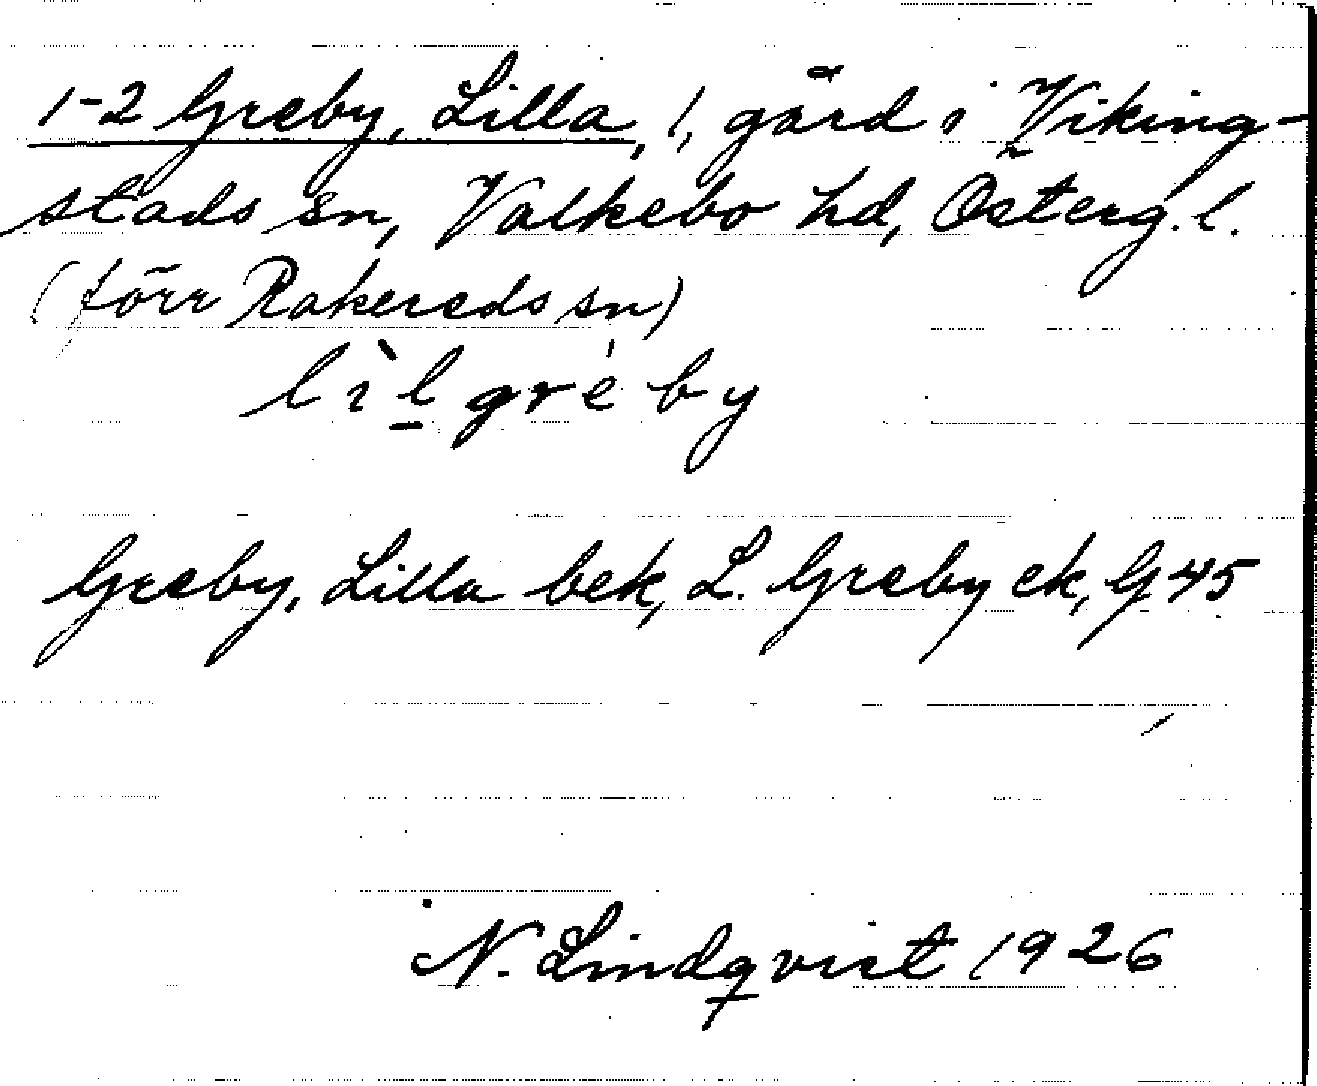 1-2 Greby, Lilla, 1, gård i Viking-
stads sn, Valkebo hd, Österg. l.
(förr Rakereds sn)
lìl̠gre̍by
Greby, Lilla bek, L. Greby ek, G 45
N. Lindqvist 1926